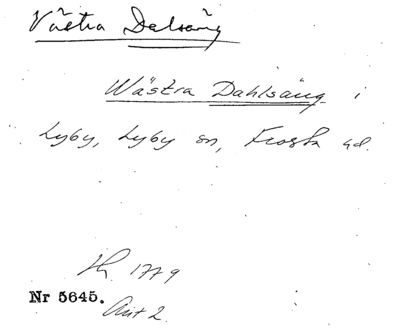 Västra Dalsäng
Wästra Dahlsäng i
Lyby, Lyby sn, Frosta hd.
Lh. 1779
Nr 5645.
Akt 2.